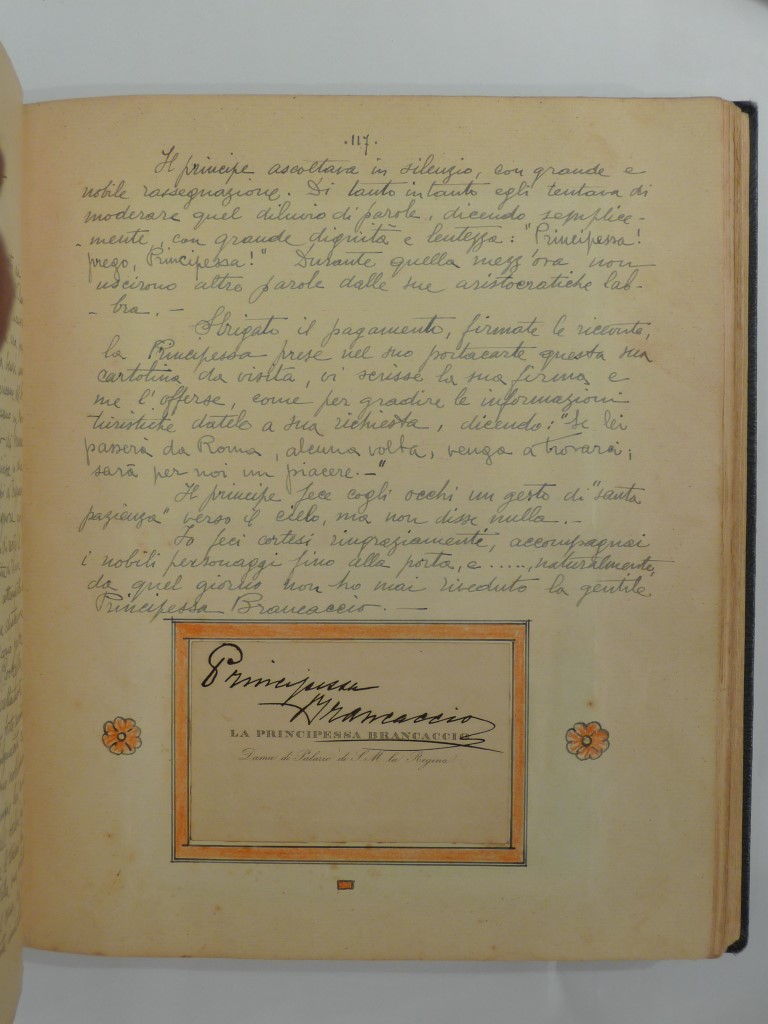 . 117 .
Il principe ascoltava in silenzio, con grande e
nobile rassegnazione. Di tanto in tanto egli tentava di
moderare quel diluvio di parole, dicendo semplice-
-mente, con grande dignità e lentezza: "Principessa!
prego, Principessa!" Durante quella mezz'ora non
uscirono altre parole dalle sue aristocratiche lab-
-bra. -
Sbrigato il pagamento, firmate le ricevute,
la Principessa prese nel suo portacarte questa sua
cartolina da visita, vi scrisse la sua firma e
me l'offerse, come per gradire le informazioni
turistiche datele a sua richiesta, dicendo: "Se lei
passerà da Roma, alcuna volta, venga a trovarci;
sarà per noi un piacere. -"
Il principe fece cogli occhi un gesto di "santa
pazienza" verso il cielo, ma non disse nulla. -
Io feci cortesi ringraziamenti, accompagnai
i nobili personaggi fino alla porta, e ....., naturalmente,
da quel giorno non ho mai riveduto la gentile
Principessa Brancaccio. -
Principessa
Brancaccio
LA PRINCIPESSA BRANCACCIO
Dama di Palazzo di S. M. la Regina